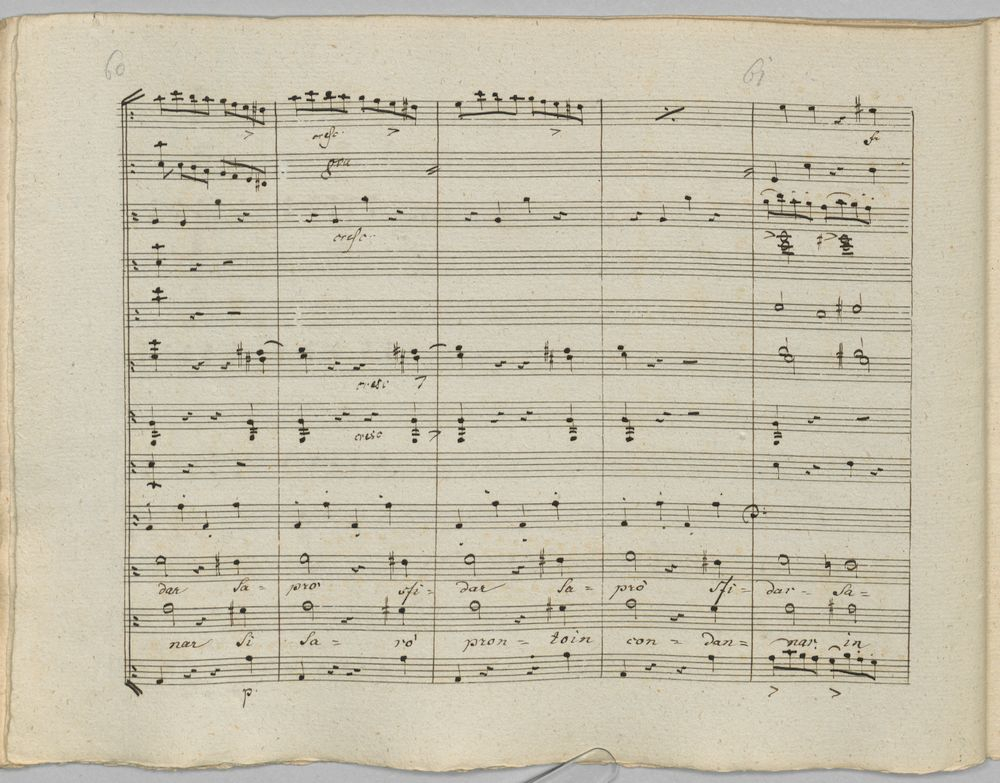 60 61
cresc.
8va
cresc.
cresc
cresc
dar sa- pro sfi- dar sa- prò sfi- dar- sa-
nar si sa- rò pron- toin con- dan- nar in
p.